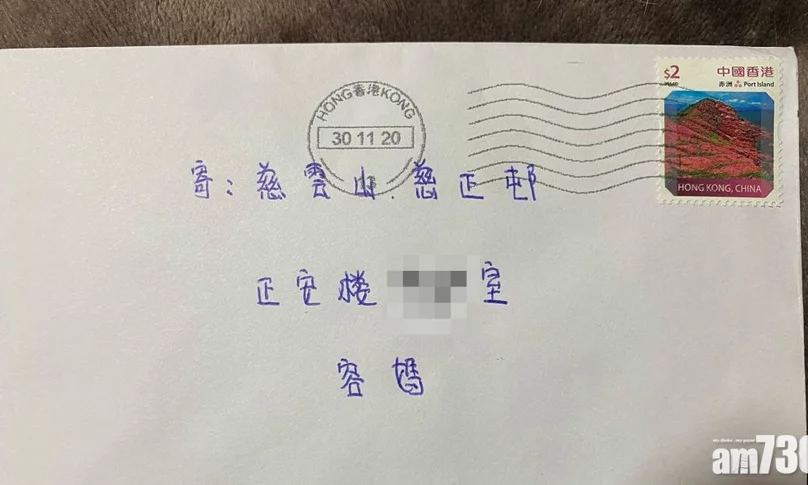 HONG香港KONG
30 11 20
$2 中國香港
赤洲 Port Island
HONG KONG, CHINA
寄：慈雲山.慈正邨
正安楼 室
容媽
am730